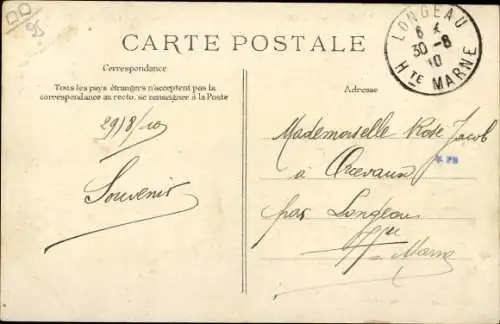 95
CARTE POSTALE
LONGEAU
6 *
30 - 8
10
HTE MARNE
Correspondance
Tous les pays étrangers n'acceptent pas la
correspondance au recto, se renseigner à la Poste
Adresse
29/8/10
Souvenir
Mademoiselle Rose Jacob
à Orcevaux
par Longeau
Hte
Marne